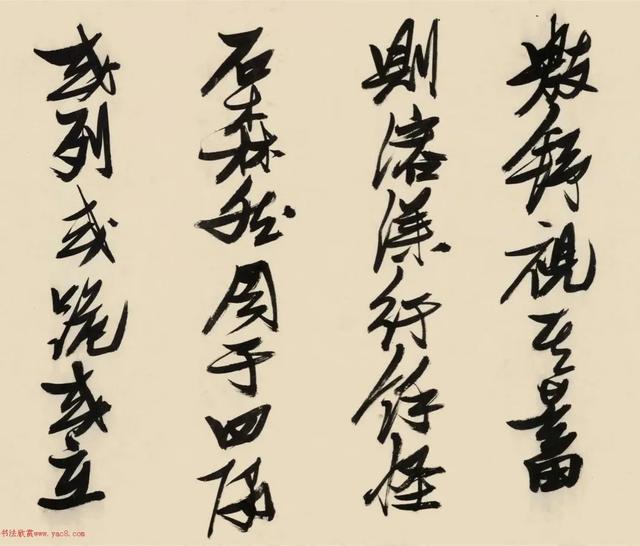 敷舒視其蓄
則溶漾紆餘怪
石森然周于四隅
或列或跪或立
书法欣赏www.yac8.com